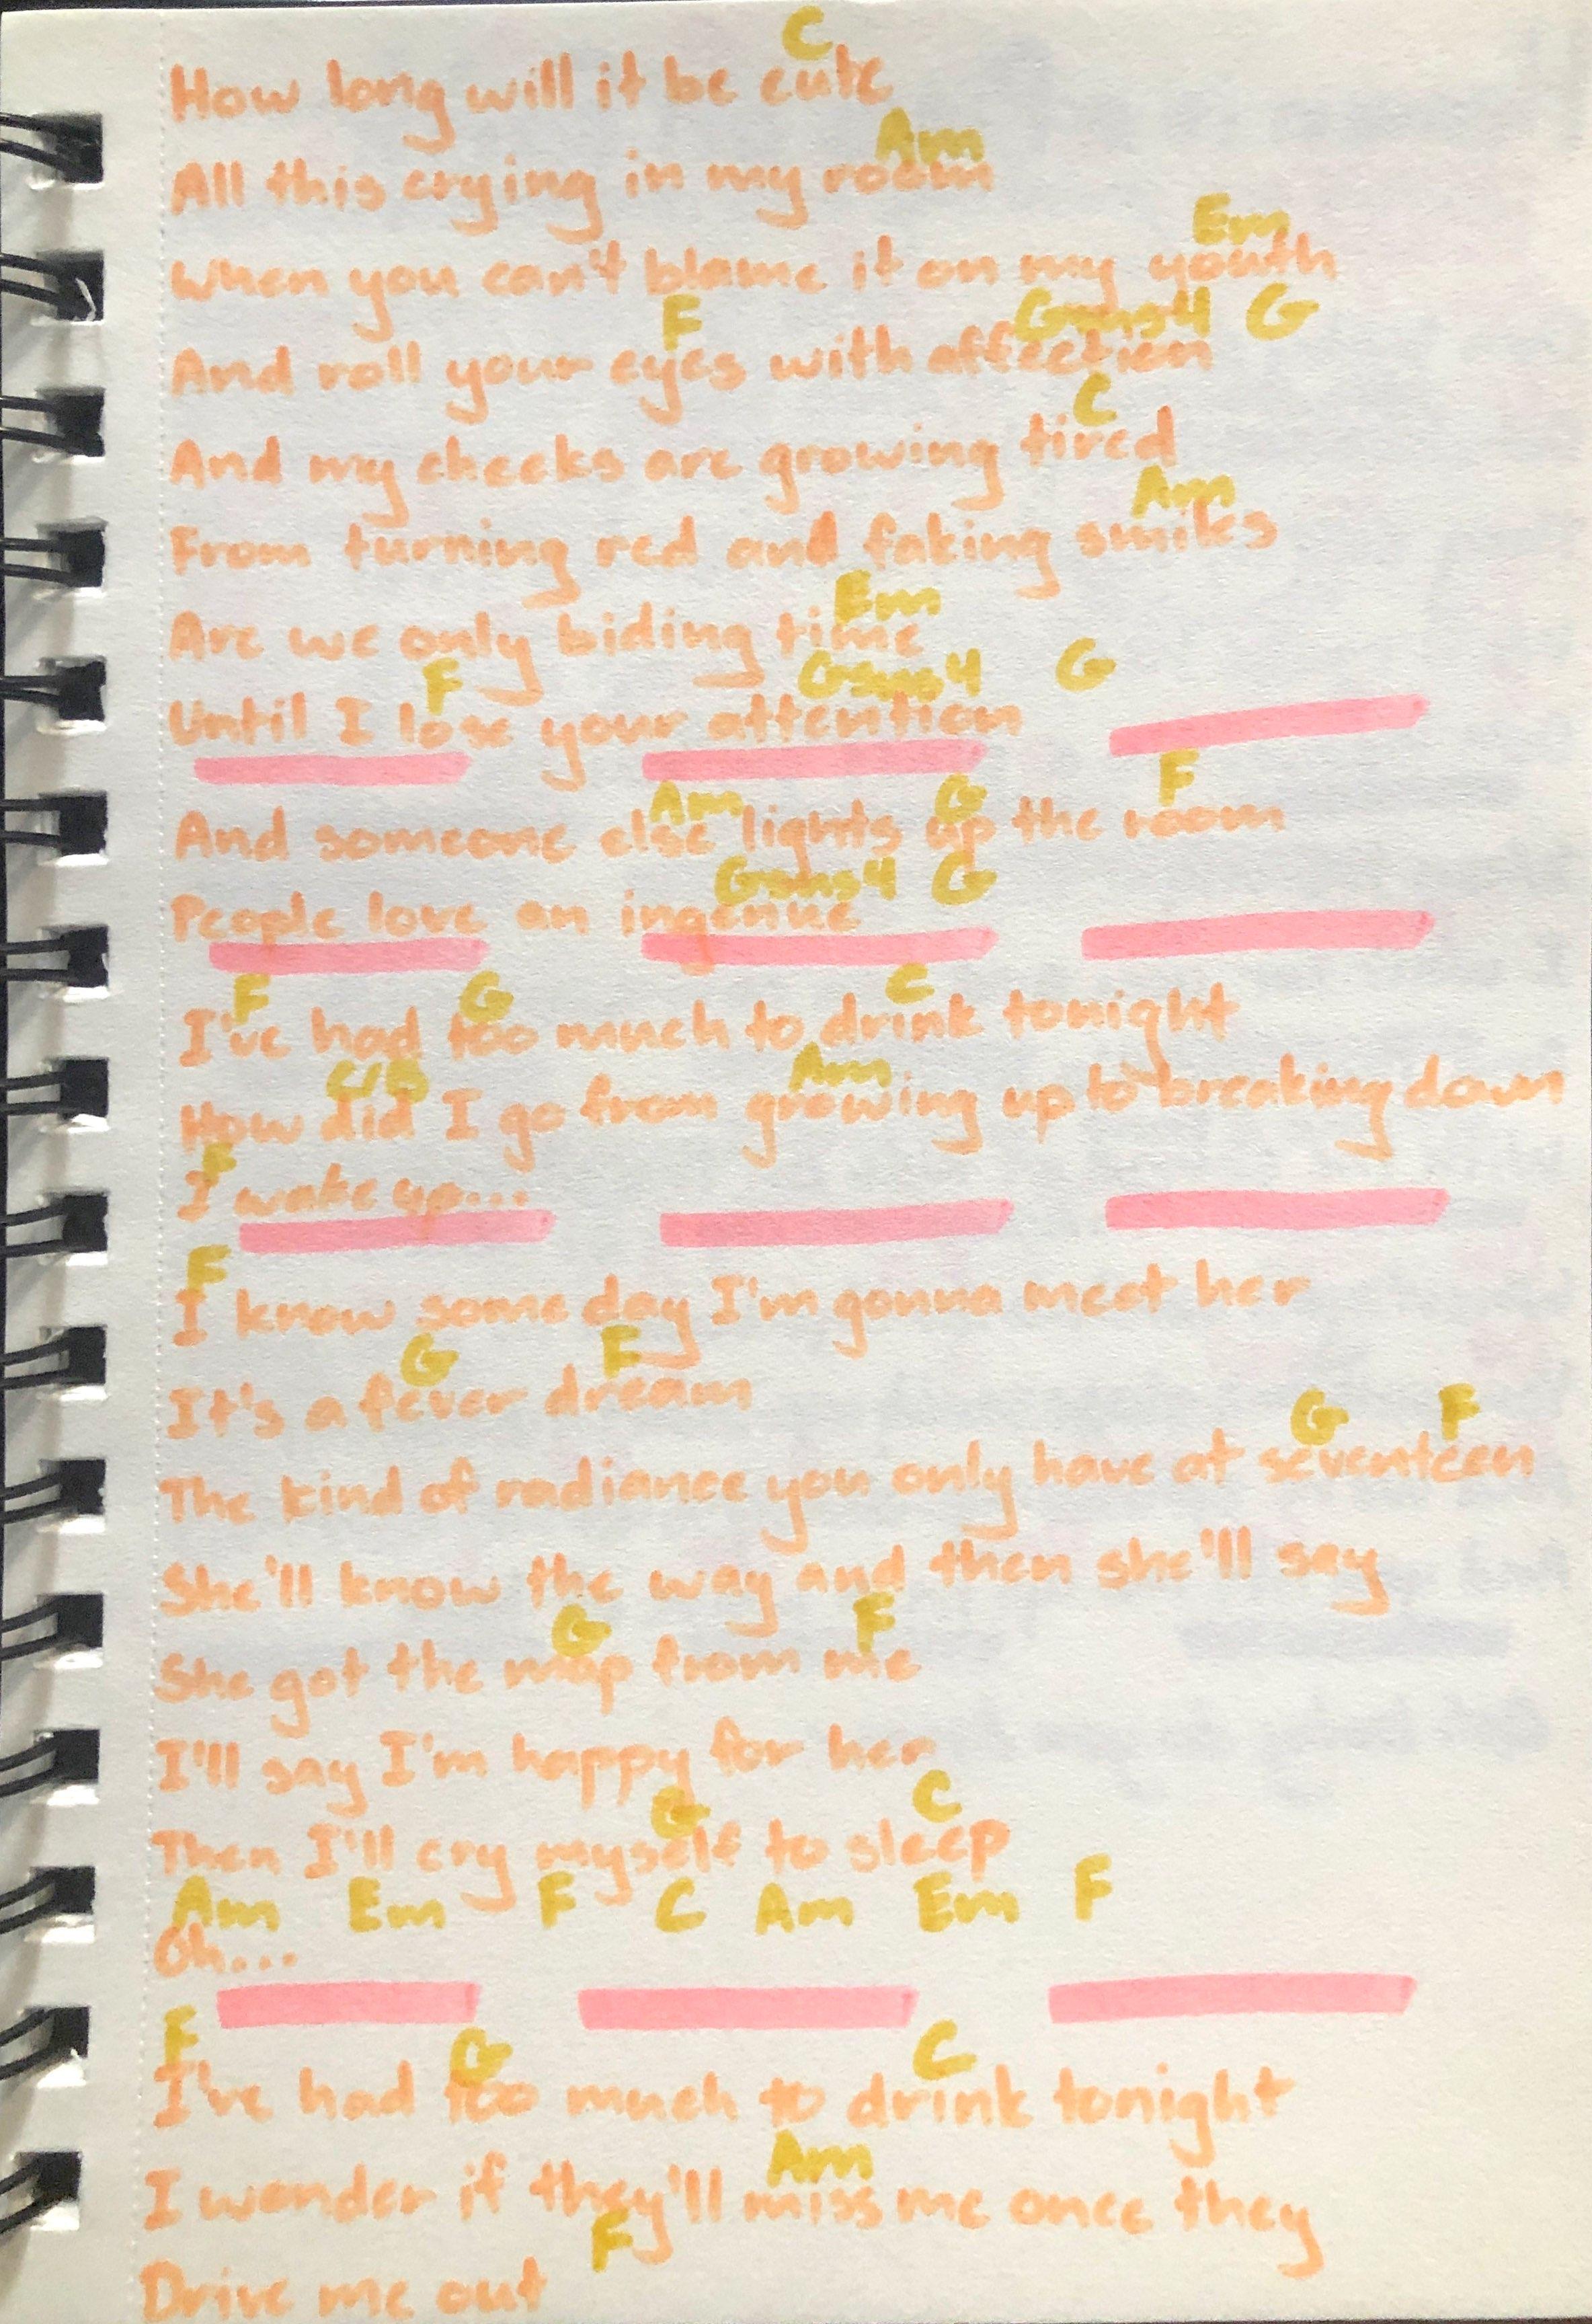 C
How long will it be cute
Am
All this crying in my room
Em
When you can't blame it on my youth
F Gsus4 G
And roll your eyes with affection
C
And my cheeks are growing tired
Am
From turning red and faking smiles
Em
Are we only biding time
F Gsus4 G
Until I lose your attention
Am G F
And someone else lights up the room
Gsus4 G
People love an ingenue
F G C
I've had too much to drink tonight
C/B Am
How did I go from growing up to breaking down
F
I wake up...
F
I know someday I'm gonna meet her
G F
It's a fever dream
G F
The kind of radiance you only have at seventeen
She'll know the way and then she'll say
G F
She got the map from me
I'll say I'm happy for her
G C
Then I'll cry myself to sleep
Am Em F C Am Em F
Oh...
F G C
I've had too much to drink tonight
Am
I wonder if they'll miss me once they
F
Drive me out